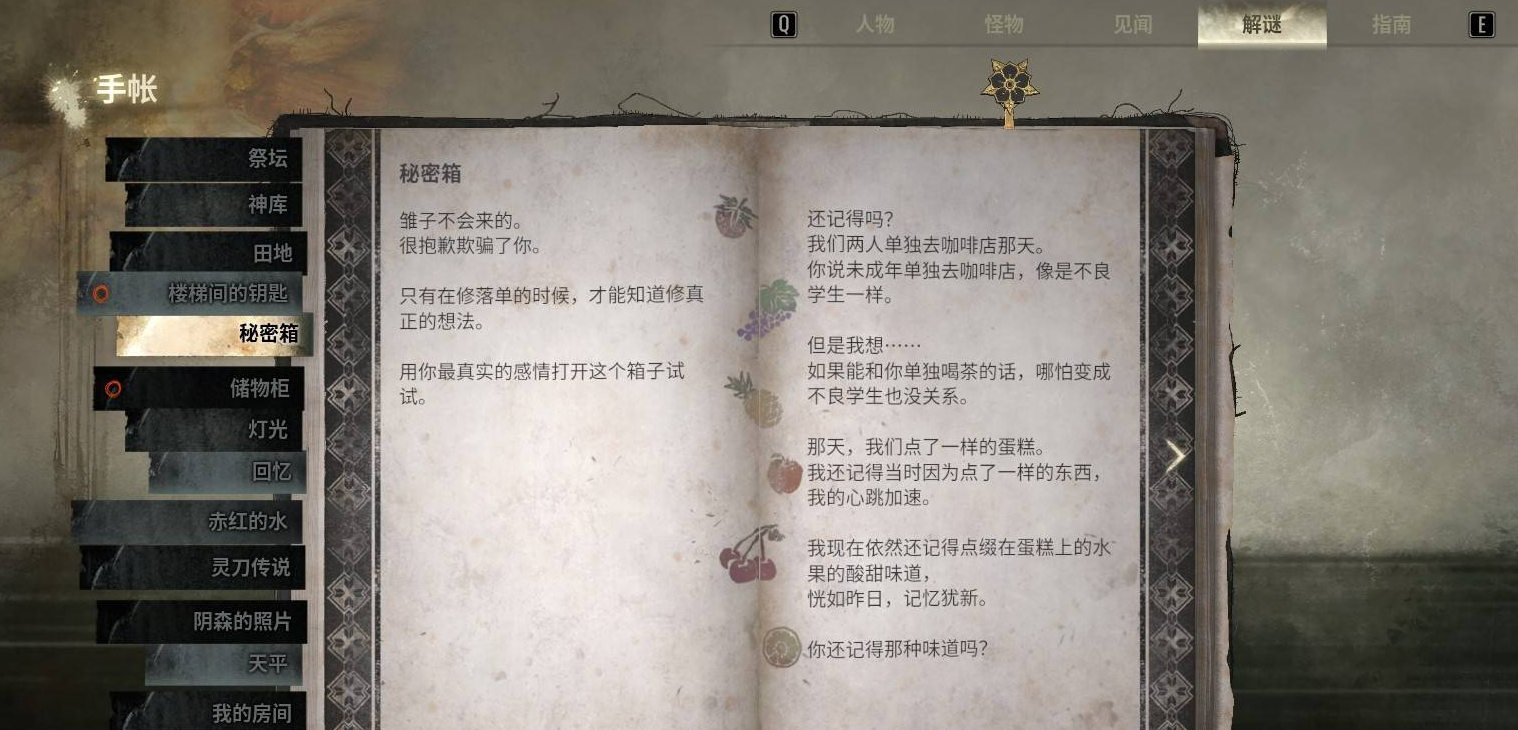 Q
人物
怪物
见闻
解谜
指南
E
手帐
祭坛
神库
田地
楼梯间的钥匙
秘密箱
储物柜
灯光
回忆
赤红的水
灵刀传说
阴森的照片
天平
我的房间
秘密箱
雏子不会来的。
很抱歉欺骗了你。
只有在修落单的时候，才能知道修真
正的想法。
用你最真实的感情打开这个箱子试
试。
还记得吗？
我们两人单独去咖啡店那天。
你说未成年单独去咖啡店，像是不良
学生一样。
但是我想……
如果能和你单独喝茶的话，哪怕变成
不良学生也没关系。
那天，我们点了一样的蛋糕。
我还记得当时因为点了一样的东西，
我的心跳加速。
我现在依然还记得点缀在蛋糕上的水
果的酸甜味道，
恍如昨日，记忆犹新。
你还记得那种味道吗？